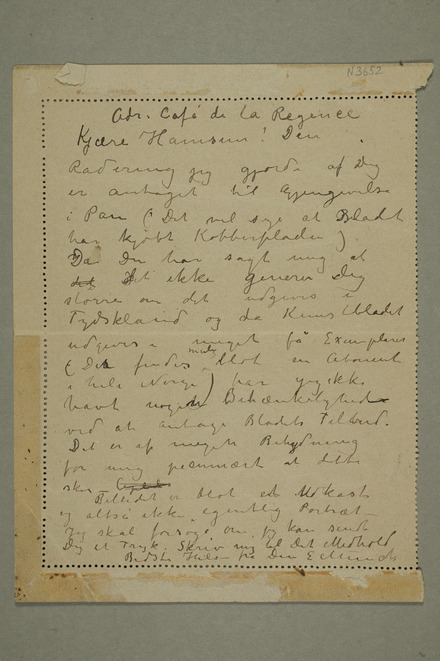 N 3652
Adr. Café de la Regence
Kjære Hamsun! Den
Radering jeg gjorde af Dig
er antaget til Gjengivelse
i Pan (Det vil sige at Bladet
har kjøbt Kobberpladen).
Da Du har sagt mig at
det ikke generer Dig
større om det udgives i
Tydskland og da Kunstbladet
udgives i meget få Exemplarer
(Der findes blot en Abonent
i hele Norge) har jeg ikke
havt nogen Betænkelighed
ved at antage Bladets Tilbud.
Det er af megen Betydning
for mig pecuniært at dette
sker
Billedet er blot et Udkast
og altså ikke egentlig Portræt
Jeg skal forsøge om jeg kan sende
Dig et Tryk. Skriv mig til det Medhold
Bedste Hilsen fra Din E Munch